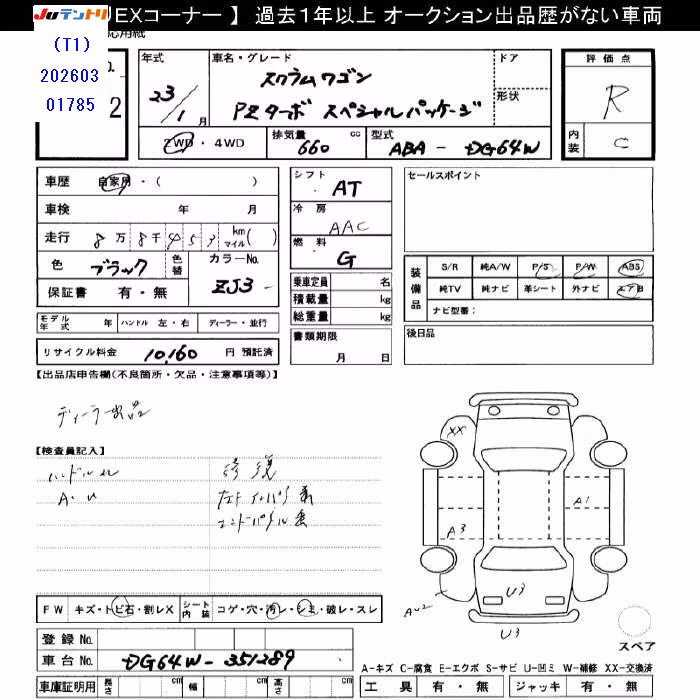 EXコーナー 】 過去1年以上 オークション出品歴がない車両
Juテントリ
(T1)
202603
01785
年式 23/1月
車名・グレード スクラムワゴン
PZターボ スペシャルパッケージ
ドア
形状
評価点 R
内装 C
2WD・4WD
排気量 660 cc
型式 ABA - DG64W
車歴 自家用・( )
車検 年 月
走行 8万8千453 km マイル( )
色 ブラック 色替 カラーNo. ZJ3
保証書 有・無
モデル年式 年 ハンドル 左・右 ディーラー・並行
リサイクル料金 10,160 円 預託済
シフト AT
冷房 AAC
燃料 G
乗車定員 名
積載量 kg
総重量 kg
書類期限
月 日
セールスポイント
装備品 S/R 純A/W P/S P/W ABS
純TV 純ナビ 革シート 外ナビ エアB
ナビ型番:
後日品
【出品店申告欄(不良箇所・欠品・注意事項等)】
ディーラー出品
【検査員記入】
修復
A・U
エンドパネル
XX
A1
A3
U3
AU2
U3
スペア
FW キズ・トビ石・割レX シート内装 コゲ・穴・汚レ・シミ・破レ・スレ
登録No.
車台No. DG64W-351289
車庫証明用 長さ cm 幅 cm 高さ cm
A-キズ C-腐食 E-エクボ S-サビ U-凹ミ W-補修 XX-交換済
工具 有・無 ジャッキ 有・無